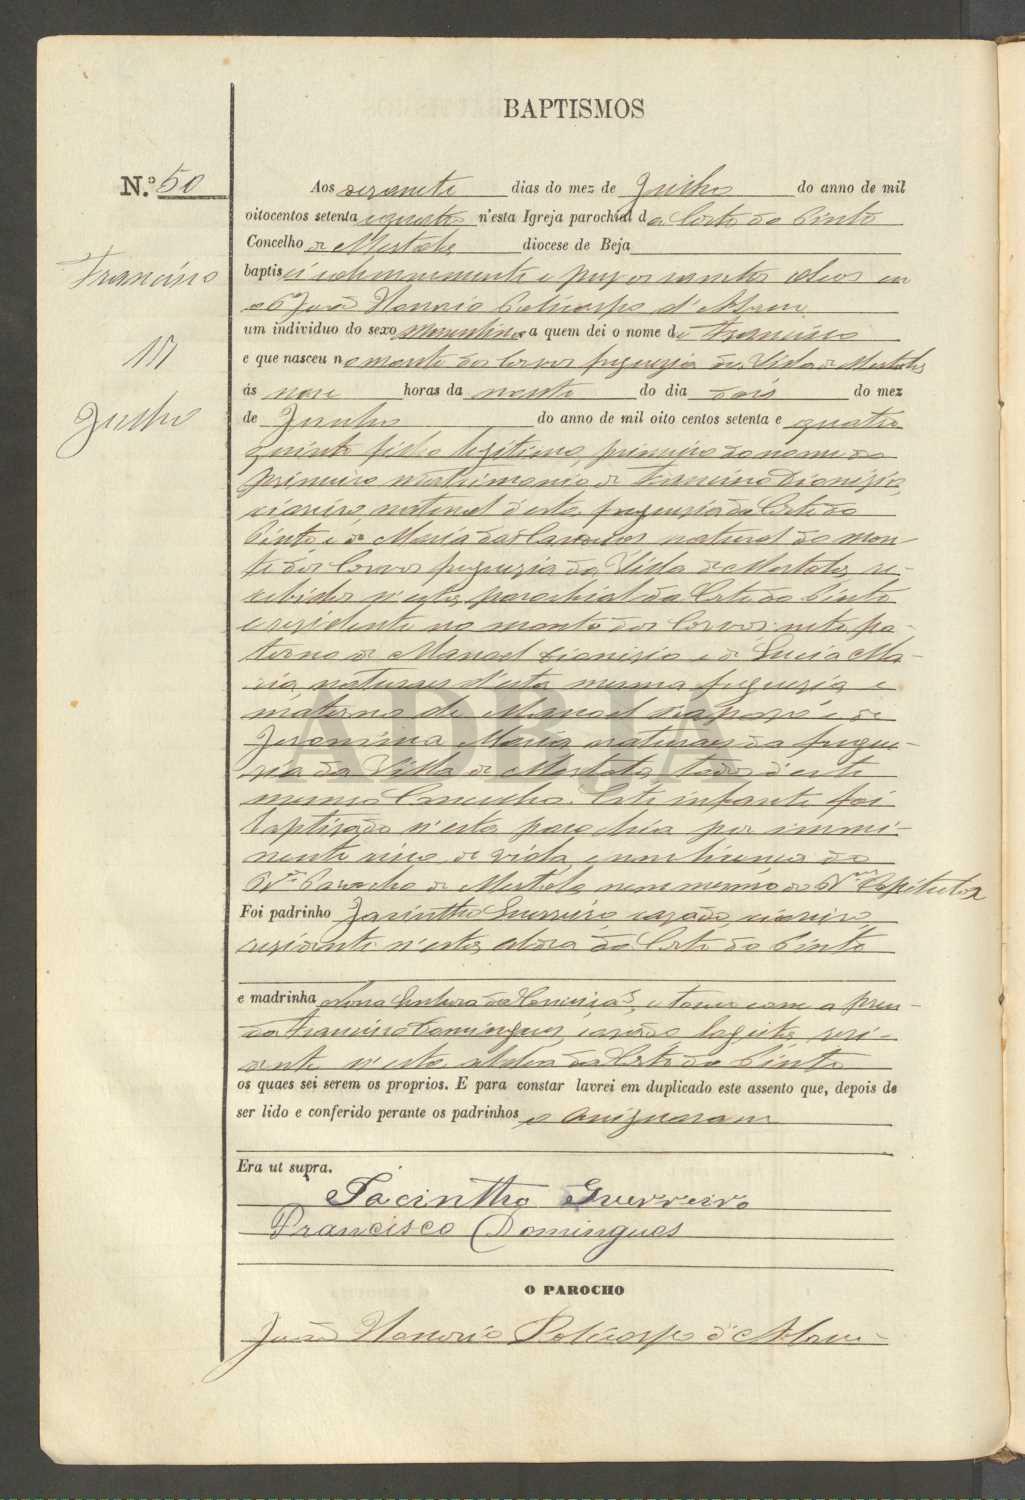 BAPTISMOS
N.º 50
Francisco
17
Julho
Aos desasete dias do mez de Julho do anno de mil
oitocentos setenta e quatro n'esta Igreja parochial da Corte do Pinto
Concelho de Mertola diocese de Beja
baptisei solemnemente e puz os santos oleos eu
o P.e João Honorio Policarpo d'Abreu
um individuo do sexo masculino a quem dei o nome de Francisco
e que nasceu no monte dos Corvos freguezia da Villa de Mertola
ás nove horas da noute do dia dois do mez
de Junho do anno de mil oito centos setenta e quatro
filho legitimo, primeiro do nome do
primeiro matrimonio de Francisco Dionizio,
natural d'esta freguezia da Corte do
Pinto e de Maria das natural do mon-
te dos Corvos freguezia da Villa de Mertola, re-
cebidos n'esta parochial da Corte do Pinto
e residentes no monte dos Corvos: neto pa-
terno de Manoel Dionizio e de Lucia Ma-
ria naturaes d'esta mesma freguezia e
materno de Manoel e de
Jeronima Maria naturaes da fregue-
zia da Villa de Mertola, todos d'este
mesmo Concelho. Este infante foi
baptisado n'esta parochia por immi-
nente risco de vida, e com licença do
Parocho de Mertola
Foi padrinho Jacintho Guerreiro, casado,
residente n'esta aldea da Corte do Pinto
e madrinha Nossa Senhora da Conceição, e tocou com a pren-
da Francisco Domingues, casado, resi-
dente n'esta aldea da Corte do Pinto
os quaes sei serem os proprios. E para constar lavrei em duplicado este assento que, depois de
ser lido e conferido perante os padrinhos o assignaram
Era ut supra.
Jacinttho Guerreiro
Francisco Domingues
O PAROCHO
João Honorio Policarpo d'Abreu
ADBJA